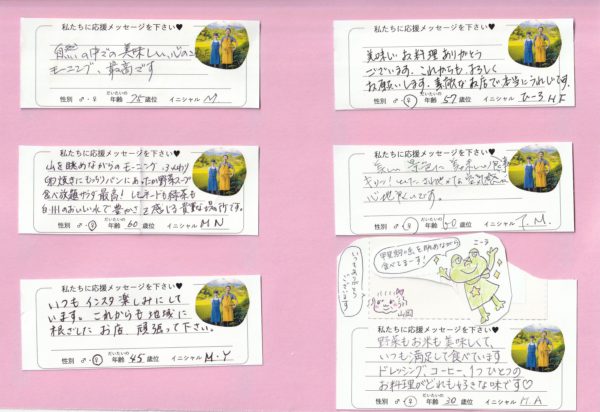 私たちに応援メッセージを下さい♥
自然の中での美味しい、心のこもった
モーニング、最高です
性別 ♂・♀ だいたいの年齢 75歳位 イニシャル M
私たちに応援メッセージを下さい♥
山を眺めながらのモーニング、ふんわり
卵焼きにもっちりパンにあったか野菜スープ
食べ放題サラダ最高!レモンケーキも緑茶も
白川のおいしい水で豊かさを感じる貴重な場所です。
性別 ♂・♀ だいたいの年齢 60歳位 イニシャル M N
私たちに応援メッセージを下さい♥
いつもインスタ楽しみにして
います。これからも地域に
根ざしたお店、頑張って下さい。
性別 ♂・♀ だいたいの年齢 45歳位 イニシャル M・Y
私たちに応援メッセージを下さい♥
美味しいお料理ありがとう
ございます。これからもよろしく
お願いします。素敵なお店で本当にうれしいです。
性別 ♂・♀ だいたいの年齢 57歳位 イニシャル ひーろ H F
私たちに応援メッセージを下さい♥
美しい景色に美味しいお食事
心地良いです。
性別 ♂・♀ だいたいの年齢 50歳位 イニシャル T.M.
いつもありがとうございます
甲斐駒の山を眺めながら
食べてまーす!
こーす
山岡
私たちに応援メッセージを下さい♥
野菜もお米も美味しくて、
いつも満足して食べています
ドレッシング、コーヒー、1つひとつの
お料理がどれも好きな味です♡
性別 ♂・♀ だいたいの年齢 30歳位 イニシャル H.A